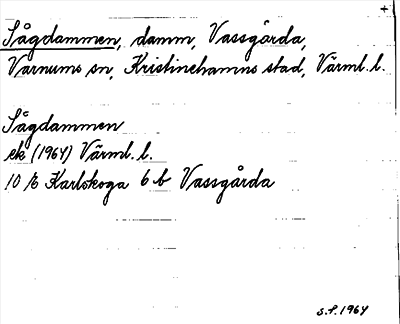 +
Sågdammen, damm, Vassgårda,
Varnums sn, Kristinehamns stad, Värml. l.
Sågdammen
ek (1964) Värml. l.
10 E Karlskoga 6 b Vassgårda
S.P. 1964